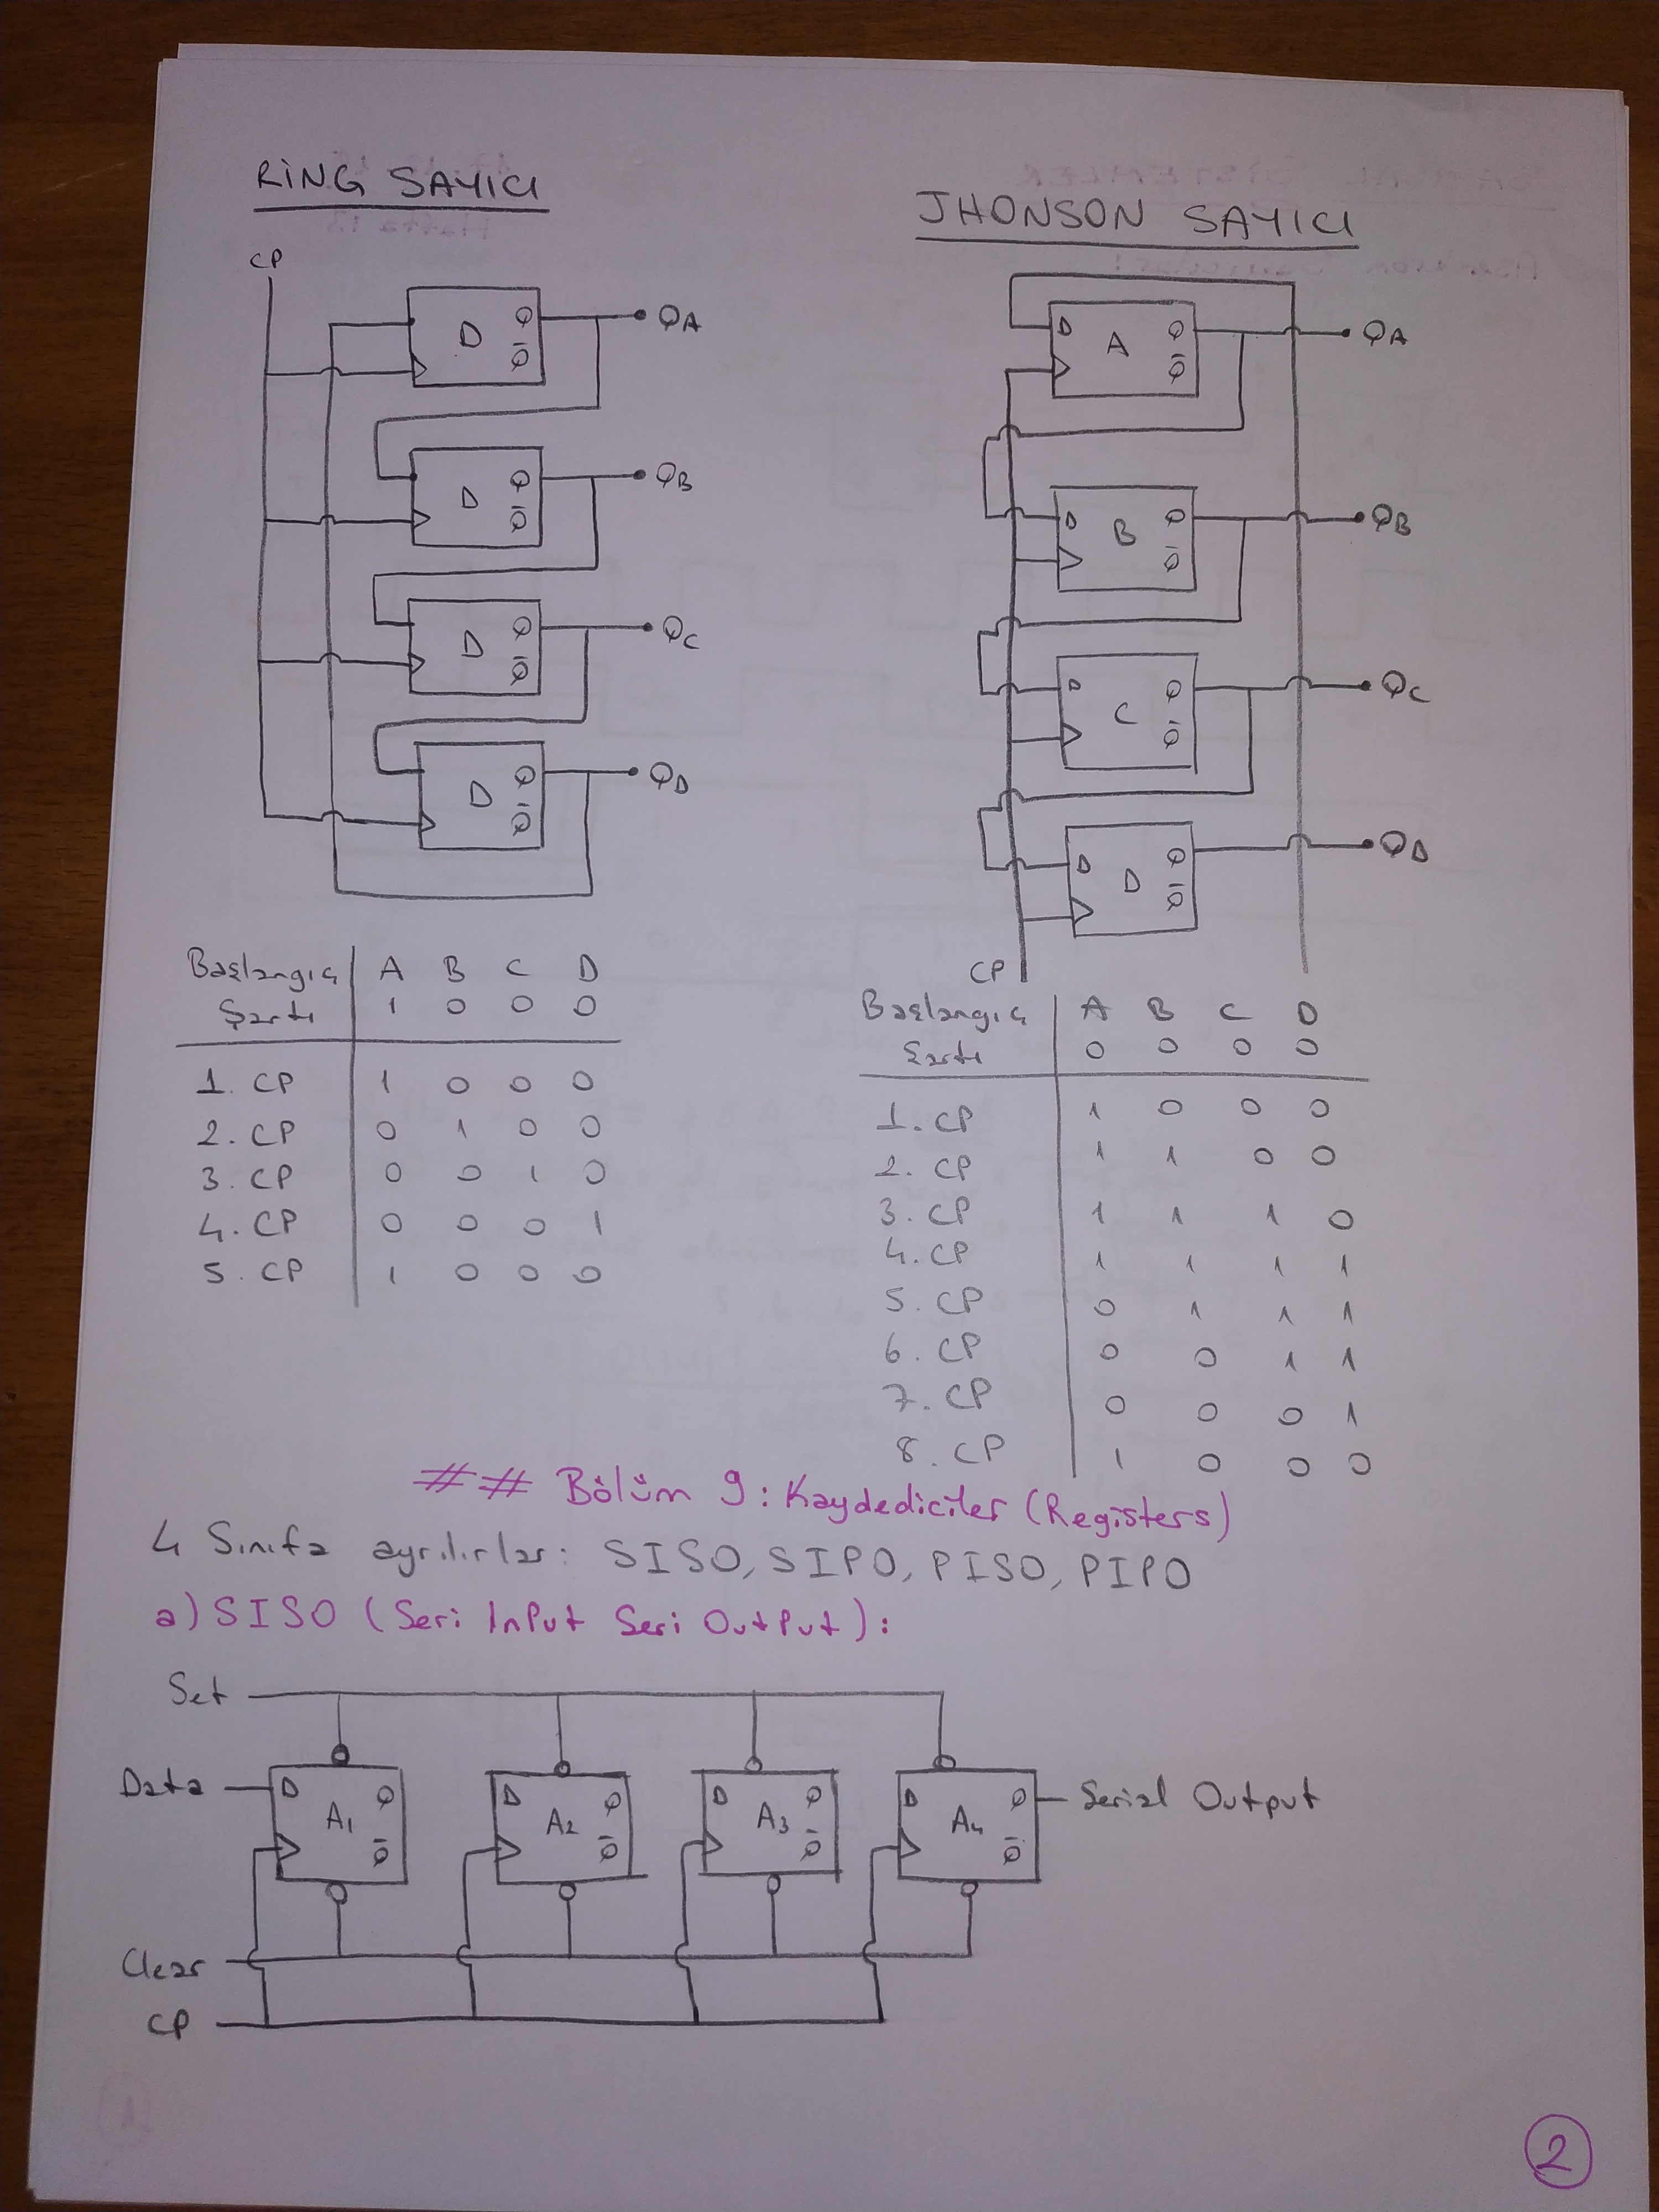 RİNG SAYICI
CP
D
Q
Q̅
QA
D
Q
Q̅
QB
D
Q
Q̅
QC
D
Q
Q̅
QD
Başlangıç A B C D
Şartı 1 0 0 0
1. CP 1 0 0 0
2. CP 0 1 0 0
3. CP 0 0 1 0
4. CP 0 0 0 1
5. CP 1 0 0 0
JHONSON SAYICI
D Q
A
Q̅
QA
D Q
B
Q̅
QB
D Q
C
Q̅
QC
D Q
D
Q̅
QD
CP
Başlangıç A B C D
Şartı 0 0 0 0
1. CP 1 0 0 0
2. CP 1 1 0 0
3. CP 1 1 1 0
4. CP 1 1 1 1
5. CP 0 1 1 1
6. CP 0 0 1 1
7. CP 0 0 0 1
8. CP 1 0 0 0
## Bölüm 9: Kaydediciler (Registers)
4 Sınıfa ayrılırlar: SISO, SIPO, PISO, PIPO
a) SISO (Seri Input Seri Output):
Set
Data D Q D Q D Q D Q Serial Output
A1 A2 A3 A4
Q̅ Q̅ Q̅ Q̅
Clear
CP
2